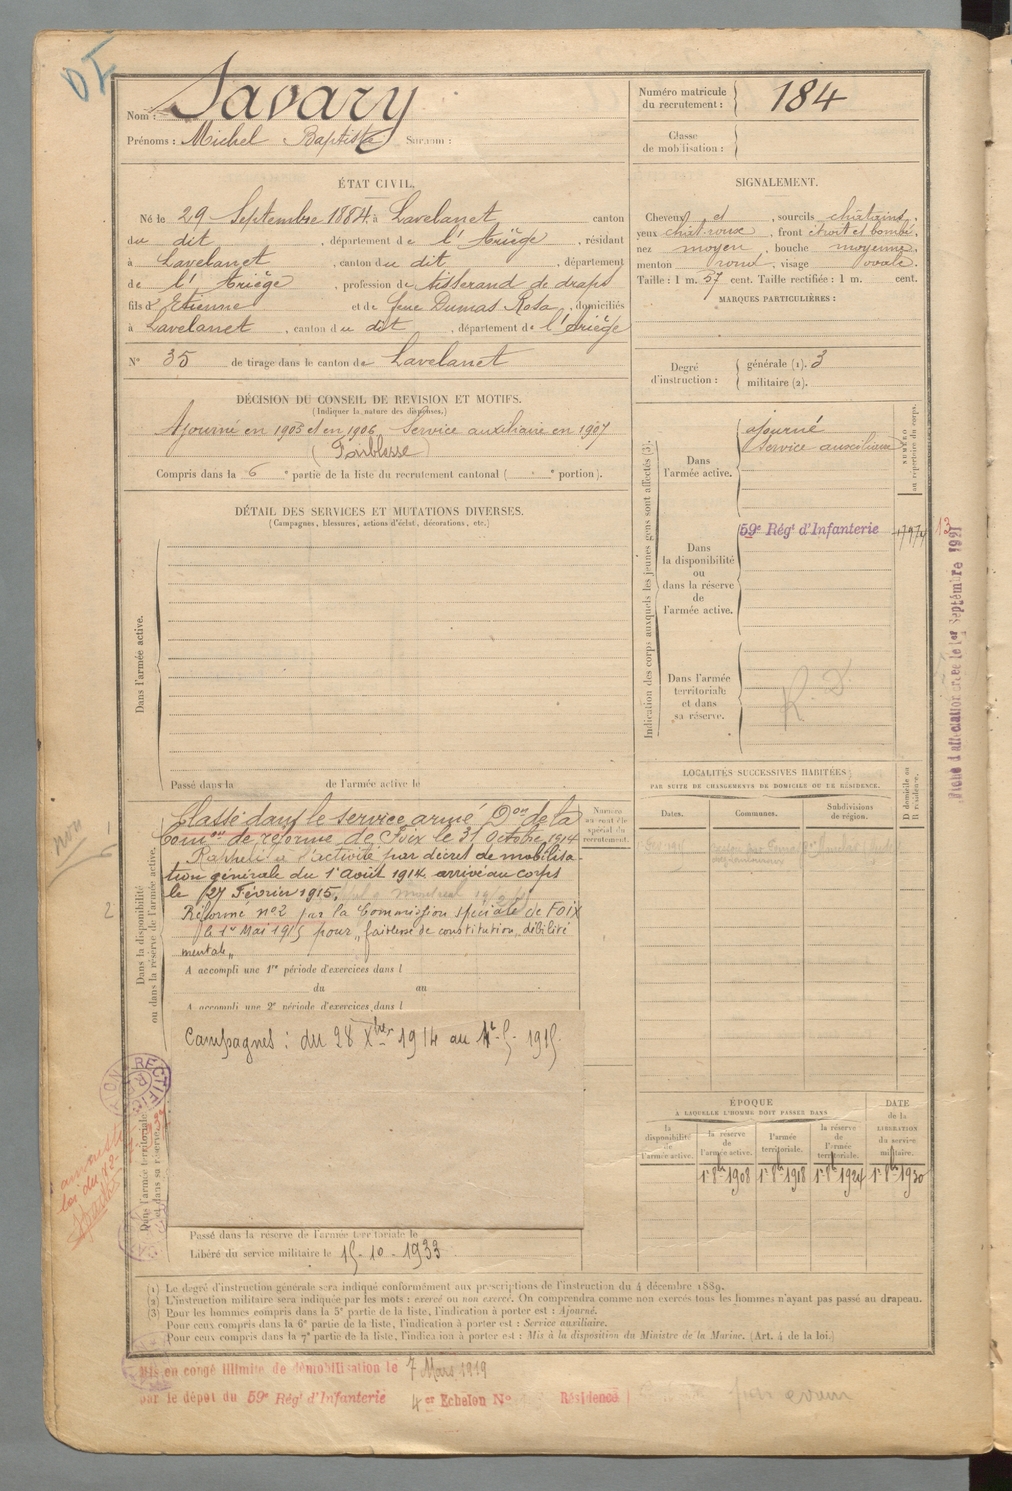 OI
Nom : Savary
Prénoms : Michel Baptista Surnom :
Numéro matricule du recrutement : 184
Classe de mobilisation :
ÉTAT CIVIL.
Né le 29 Septembre 1884, à Lavelanet canton
du dit, département de l'Ariège, résidant
à Lavelanet, canton du dit, département
de l'Ariège, profession de tisserand de draps
fils d'Etienne et de feue Dumas Rosa, domiciliés
à Lavelanet, canton du dit, département de l'Ariège
N° 35 de tirage dans le canton de Lavelanet
SIGNALEMENT.
Cheveux et, sourcils châtains,
yeux chât. roux, front étroit et bombé,
nez moyen, bouche moyenne,
menton rond, visage ovale.
Taille : 1 m. 57 cent. Taille rectifiée : 1 m. cent.
MARQUES PARTICULIÈRES :
Degré d'instruction : générale (1). 3
militaire (2).
DÉCISION DU CONSEIL DE REVISION ET MOTIFS.
(Indiquer la nature des dispenses.)
Ajourné en 1905 et en 1906 Service auxiliaire en 1907
(Faiblesse)
Compris dans la 6e partie de la liste du recrutement cantonal ( e portion).
DÉTAIL DES SERVICES ET MUTATIONS DIVERSES.
(Campagnes, blessures, actions d'éclat, décorations, etc.)
Dans l'armée active.
Passé dans la de l'armée active le
Indication des corps auxquels les jeunes gens sont affectés (3).
NUMÉRO au répertoire du corps.
Dans l'armée active.
ajourné
Service auxiliaire
Dans la disponibilité ou dans la réserve de l'armée active.
59e Régt d'Infanterie
13
Dans l'armée territoriale et dans sa réserve.
R. D.
Fiche d'affectation créée le 1er Septembre 1921
LOCALITÉS SUCCESSIVES HABITÉES
PAR SUITE DE CHANGEMENTS DE DOMICILE OU DE RÉSIDENCE.
Dates.
Communes.
Subdivisions de région.
D domicile ou R résidence.
non
1
2
Dans la disponibilité ou dans la réserve de l'armée active.
Classé dans le service armé Don de la
Comon de réforme de Foix le 31 Octobre 1914
Rappelé à l'activité par décret de mobilisa-
tion générale du 1er Août 1914. arrivé au corps
le 27 Février 1915.
Réformé n°2 par la Commission spéciale de FOIX
le 1er Mai 1915 pour "faiblesse de constitution, débilité
mentale"
A accompli une 1re période d'exercices dans l
du au
A accompli une 2e période d'exercices dans l
Campagnes : du 28 Xbre 1914 au 1r-5-1915.
Dans l'armée territoriale et dans sa réserve.
RECTIFICATION
amnistié
loi du
Passé dans la réserve de l'armée territoriale le
Libéré du service militaire le 15-10-1933
ÉPOQUE
A LAQUELLE L'HOMME DOIT PASSER DANS
la disponibilité de l'armée active.
la réserve de l'armée active.
l'armée territoriale.
la réserve de l'armée territoriale.
DATE de la LIBÉRATION du service militaire.
1r 8bre 1908
1r 8bre 1918
1r 8bre 1924
1r 8bre 1930
(1) Le degré d'instruction générale sera indiqué conformément aux prescriptions de l'instruction du 4 décembre 1889.
(2) L'instruction militaire sera indiquée par les mots : exercé ou non exercé. On comprendra comme non exercés tous les hommes n'ayant pas passé au drapeau.
(3) Pour les hommes compris dans la 5e partie de la liste, l'indication à porter est : Ajourné.
Pour ceux compris dans la 6e partie de la liste, l'indication à porter est : Service auxiliaire.
Pour ceux compris dans la 7e partie de la liste, l'indication à porter est : Mis à la disposition du Ministre de la Marine. (Art. 4 de la loi.)
Mis en congé illimité de démobilisation le 7 Mars 1919
par le dépôt du 59e Régt d'Infanterie 4er Echelon N° Résidence